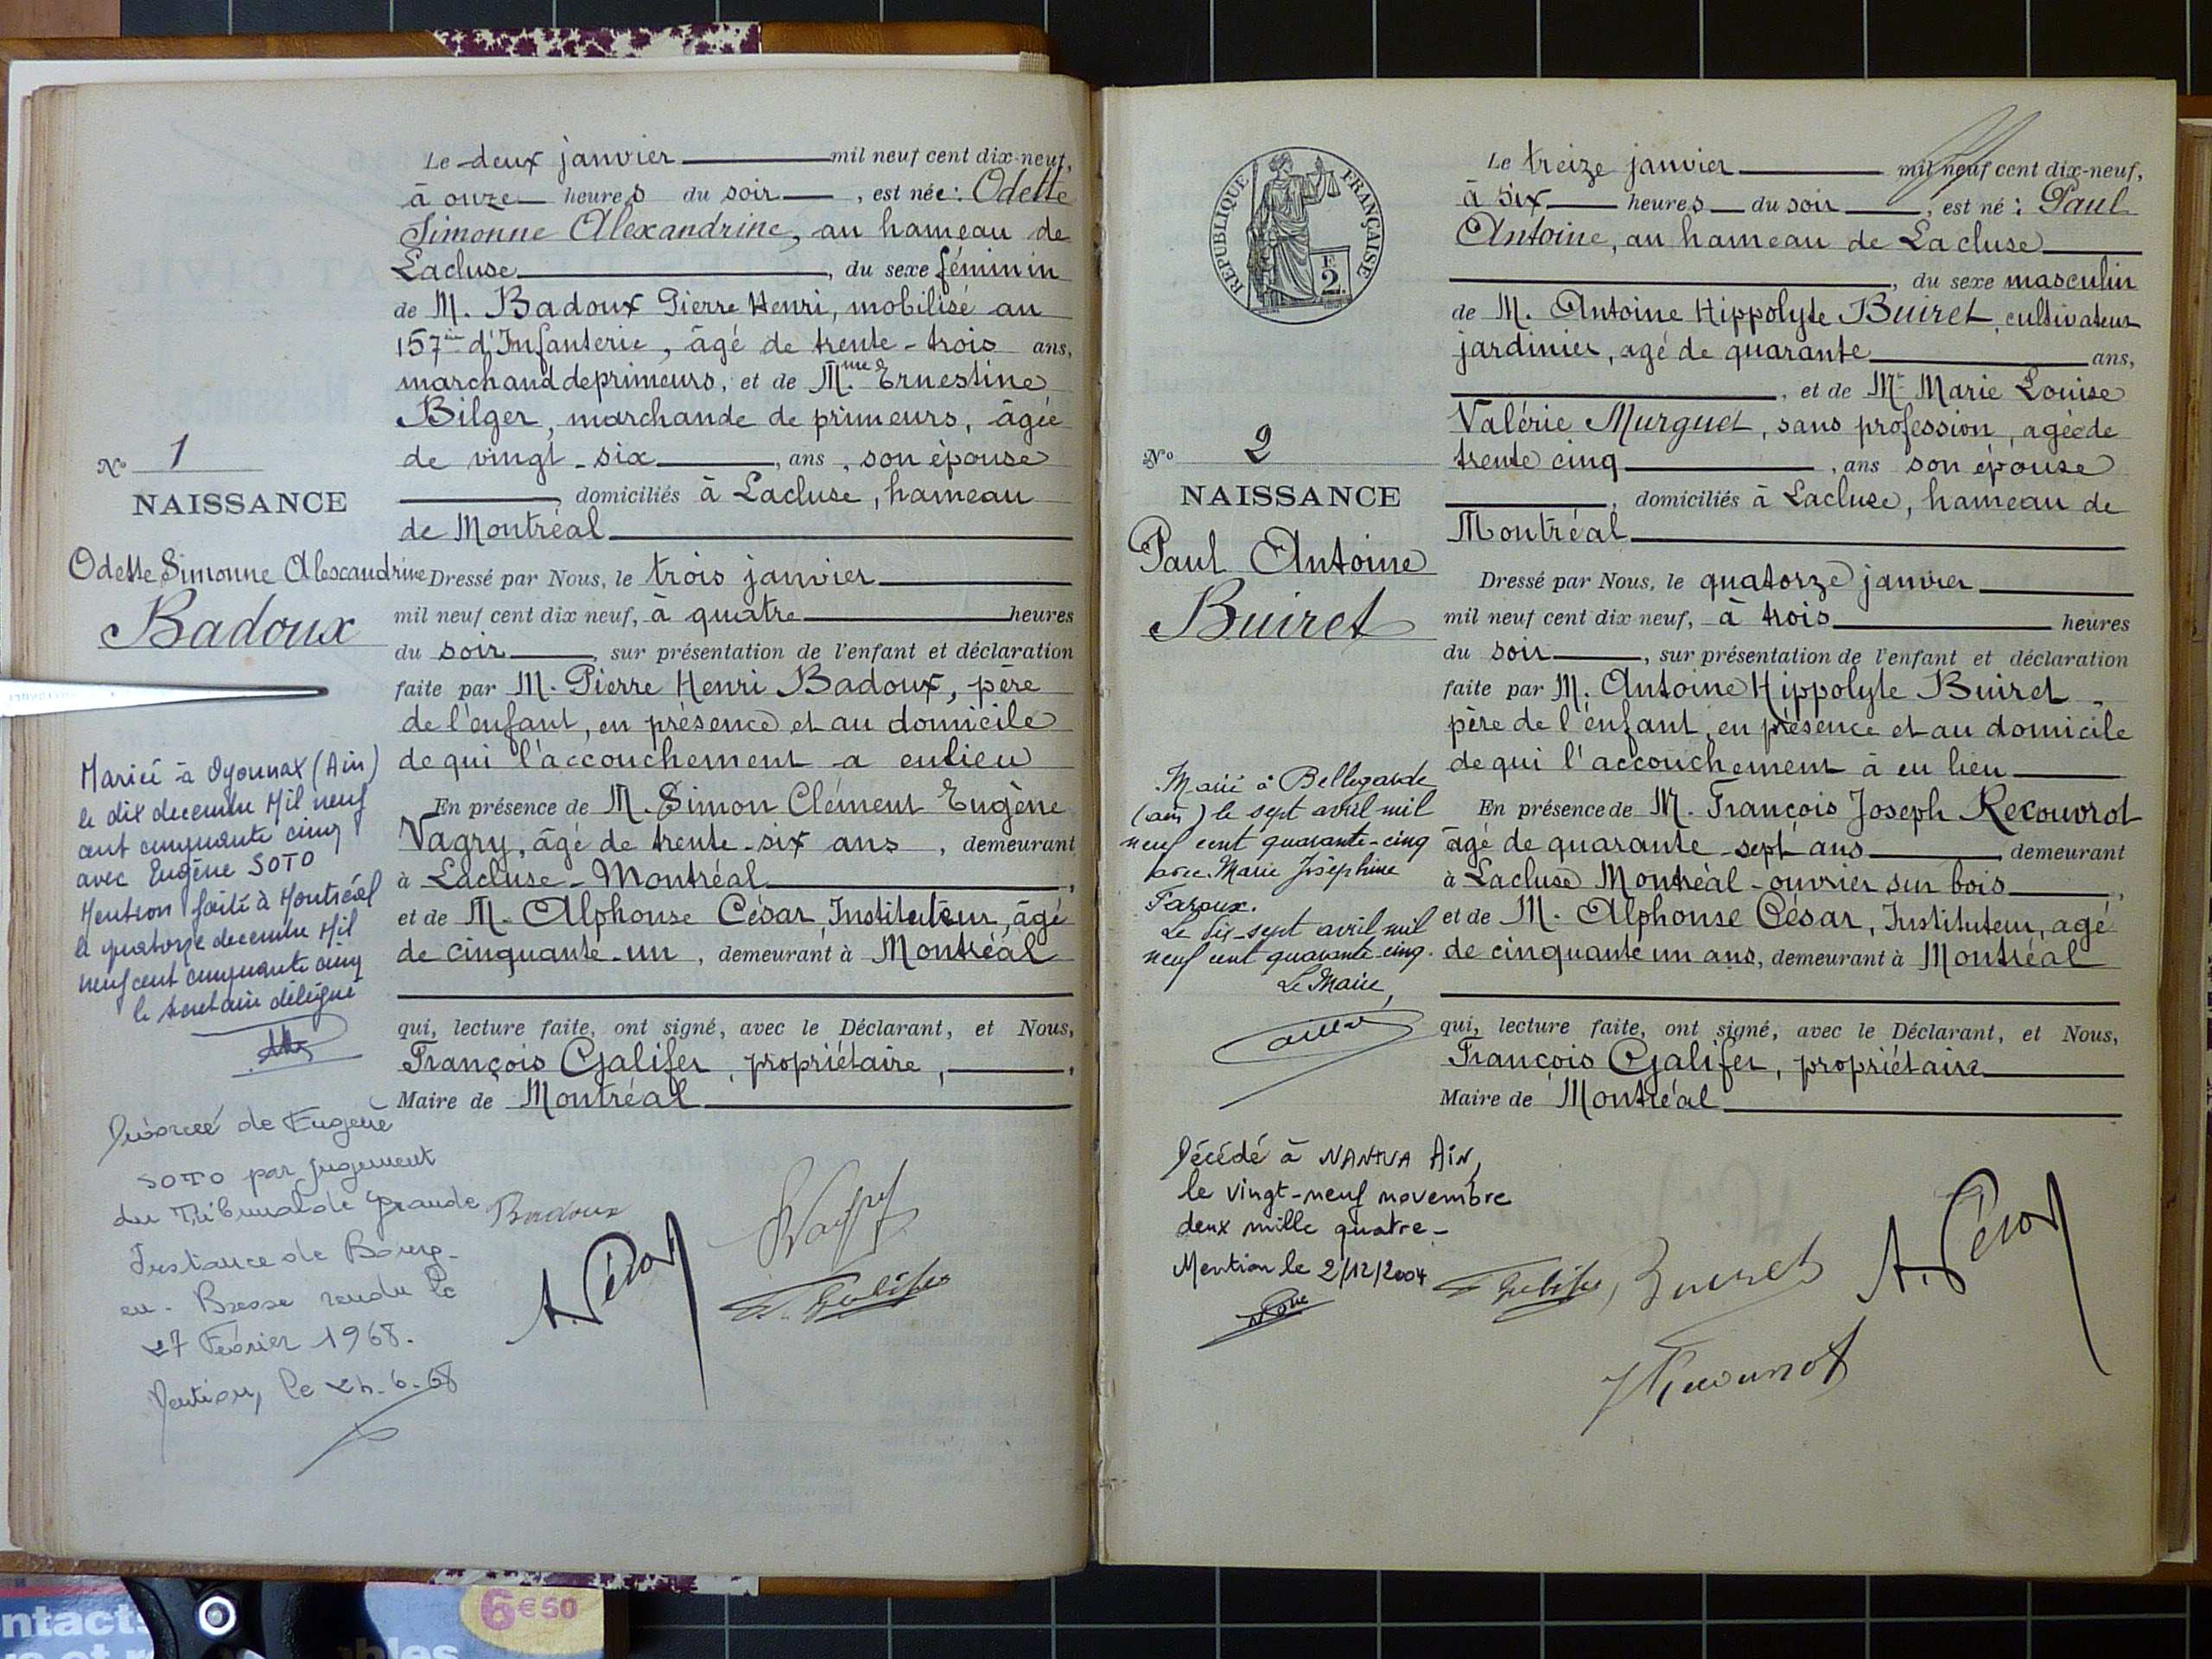 Le deux janvier mil neuf cent dix-neuf,
à onze heures du soir, est née : Odette
Simonne Alexandrine, au hameau de
Lacluse, du sexe féminin
de M. Badoux Pierre Henri, mobilisé au
157ème d'Infanterie, âgé de trente-trois ans,
marchand de primeurs, et de Mme Ernestine
Bilger, marchande de primeurs, âgée
de vingt-six, ans, son épouse
, domiciliés à Lacluse, hameau
de Montréal
N° 1
NAISSANCE
Odette Simonne Alexcandrine
Badoux
Dressé par Nous, le trois janvier
mil neuf cent dix neuf, à quatre heures
du soir, sur présentation de l'enfant et déclaration
faite par M. Pierre Henri Badoux, père
de l'enfant, en présence et au domicile
de qui l'accouchement a eu lieu
En présence de M. Simon Clément Eugène
Vagry, âgé de trente-six ans, demeurant
à Lacluse-Montréal,
et de M. Alphonse César, Instituteur, âgé
de cinquante-un, demeurant à Montréal
qui, lecture faite, ont signé, avec le Déclarant, et Nous,
François Galifer, propriétaire,
Maire de Montréal
Mariée à Oyonnax (Ain)
le dix decembre Mil neuf
cent cinquante cinq
avec Eugène SOTO
Mention faite à Montréal
le quatorze decembre Mil
neuf cent cinquante cinq
le secretaire délégué
Divorcée de Eugène
SOTO par jugement
du Tribunal de Grande
Instance de Bourg-
en-Bresse rendu le
27 Février 1968.
Mention, le 24-6-68
Badoux
Vagry
A. César
F. Galifer
REPUBLIQUE FRANÇAISE
F
2.
Le treize janvier mil neuf cent dix-neuf,
à six heures du soir, est né : Paul
Antoine, au hameau de Lacluse
, du sexe masculin
de M. Antoine Hippolyte Buiret, cultivateur
jardinier, agé de quarante ans,
, et de Me Marie Louise
Valérie Murguet, sans profession, agée de
trente cinq, ans son épouse
, domiciliés à Lacluse, hameau de
Montréal
N° 2
NAISSANCE
Paul Antoine
Buiret
Dressé par Nous, le quatorze janvier
mil neuf cent dix neuf, à trois heures
du soir, sur présentation de l'enfant et déclaration
faite par M. Antoine Hippolyte Buiret
père de l'enfant, en présence et au domicile
de qui l'accouchement à eu lieu
En présence de M. François Joseph Recouvrot
âgé de quarante-sept ans demeurant
à Lacluse Montréal-ouvrier sur bois,
et de M. Alphonse César, Instituteur, agé
de cinquante un ans, demeurant à Montréal
qui, lecture faite, ont signé, avec le Déclarant, et Nous,
François Galifer, propriétaire
Maire de Montréal
Marié à Bellegarde
(ain) le sept avril mil
neuf cent quarante-cinq
avec Marie Joséphine
Faroux.
Le dix-sept avril mil
neuf cent quarante-cinq.
Le Maire,
Décédé à NANTUA AiN,
le vingt-neuf novembre
deux mille quatre-
Mention le 2/12/2004
F Galifer, Buiret
A. César
J Recouvrot
6€50
ntacts